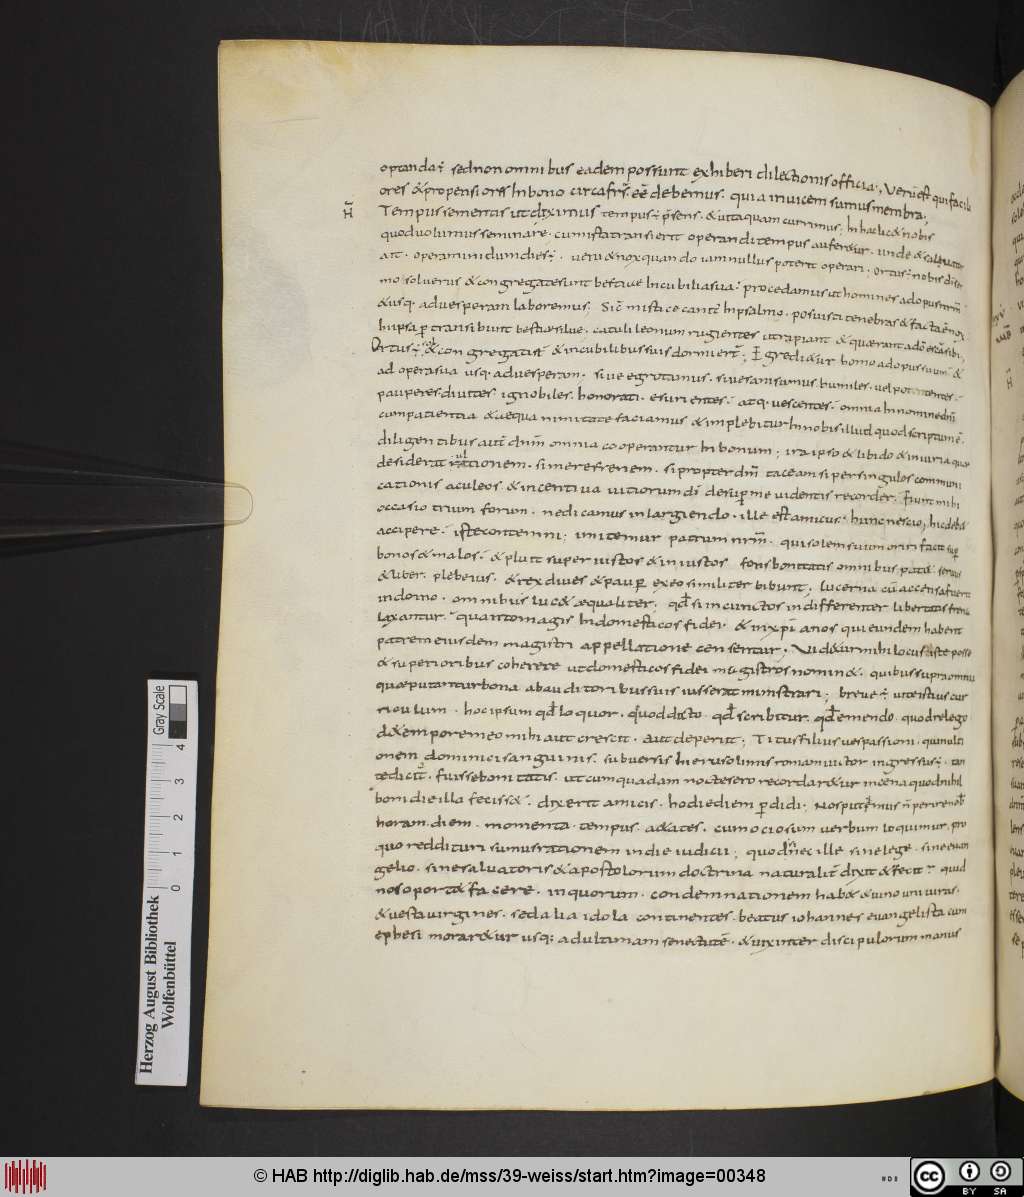 optanda ÷ sed non omnibus eadem possunt exhiberi dilectionis officia, Verū est qui facili
ores & propensiores In bono circa frs̄ eē debemus. quia inuicem sumus membra;
H̄ Tempus sementis ut diximus tempus ÷ p̄sens. & uita quam currimus; In hac licet nobis
quod uolumus seminare. cum ista transierit operandi tempus aufer&ur. unde & saluator
ait. operamini dum dies ÷. ueniet nox quando iam nullus poterit operari; Ortus ÷ nobis
mo sol uerus & congregatę sunt bestiae In cubilia sua: procedamus ut homines ad opus nrm̄
& usq. ad uesperam laboremus: Sic̄ mistice cant& In psalmo. posuisti tenebras & facta ē nox
In ipsa p transibunt bestiae siluę. catuli leonum rugientes ut rapiant & quaerant a dō escā sibi,
Ortus ÷ sol & congregati st̄ & in cubilibus suis dormiert̄; Egredi&ur homo ad opus suum &
ad opera sua usq. ad uesperam. siue egrotamus. siue sani sumus humiles. uel potentes
pauperes diuites. ignobiles. honorati. esurientes. atq. uescentes. omnia In nomine dn̄i
cum patientia & aequanimitate faciamus & implebitur In nobis illud quod scriptum ē.
diligentibus aut̄ dnm̄ omnia cooperantur In bonum; ira ipsa & libido & iniuria quae
desiderat ultionem. si me refrenem. si propter dm̄ taceam si per singulos commoti
cationis aculeos. & incentiua uitiorum dī desup me uidentis recorder. Fiunt mihi
occasio triumforum. ne dicamus in largiendo. ille est amicus. hunc nescio, hic deb&
accipere. iste contemni; imitemur patrem nrm̄. qui solem suum oriri facit sup
bonos & malos. & pluit super iustos & iniustos fons bonitatis omnibus pat&. seruus
& liber. plebeius. & rex diues & paup ex eo similiter bibunt; lucerna cū accensa fuerit
in domo. omnibus luc& aequaliter; qd̄ si in cunctos indifferenter libertatis frena
laxantur. quanto magis In domesticos fidei. & in xp̄ianos qui eundem habent
patrem eiusdem magistri appellatione censentur; Vid&ur mihi locus iste posse
& superioribus coherere ut domesticos fidei magistros nomin&. quibus supra omnia
quae putantur bona ab auditoribus suis iusserat ministrari; breue ÷ uitę istius cur
riculum. hoc ipsum qd̄ loquor. quod dicto. qd̄ scribitur. qd̄ emendo. quod relego
d& empore meo mihi aut crescit. aut deperit; Titus filius uespassiani. qui in ulti
onem dominici sanguinis. subuersis hierusolimis romam uictor ingressus ÷. tan
te dicit̄. fuisse bonitatis. ut cum quadam nocte sero recordar&ur in cena quod nihil
boni die illa fecisset. dixerit amicis. hodie diem pdidi; Nos putamus n̄ perire nob̄
horam. diem. momenta. tempus. aetates. cum ociosum uerbum loquimur. pro
quo reddituri sumus rationem in die iudicii; quod n̄ ec ille sine lege. sine euan
gelio. sine saluatoris & apostolorum doctrina naturalit̄ dixit & fecit ÷ quid
nos oport& facere. in quorum. condemnationem hab& & iuno uniuiras.
& uesta uirgines. sed alia idola continentes. beatus iohannes euangelista cum
ephesi morar&ur usq: ad ultimam senectutē. & uix inter discipulorum manus
Herzog August Bibliothek
Wolfenbüttel
0 1 2 3 4
Gray Scale
© HAB http://diglib.hab.de/mss/39-weiss/start.htm?image=00348
cc BY SA